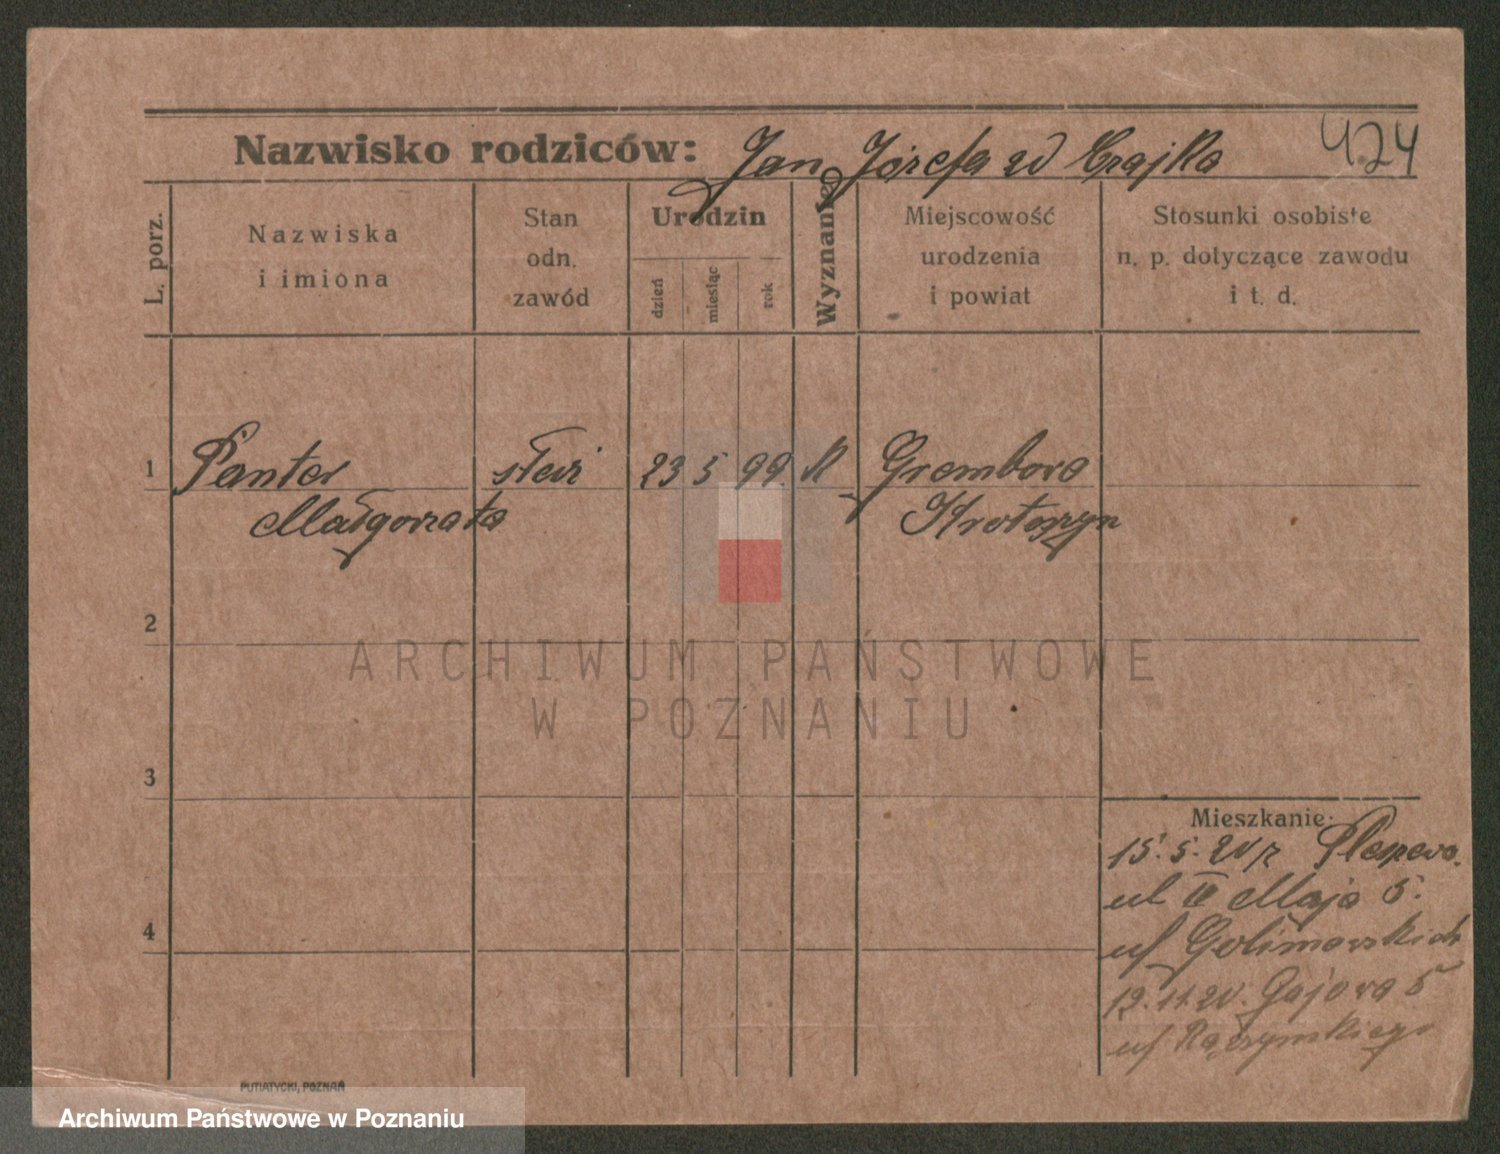 Nazwisko rodziców: Jan Józefa zd Czajka 424
L. porz.
Nazwiska
i imiona
Stan
odn.
zawód
Urodzin
dzień
miesiąc
rok
Wyznanie
Miejscowość
urodzenia
i powiat
Stosunki osobiste
n. p. dotyczące zawodu
i t. d.
1 Panter 23 5 99 K Grembow
Małgorzata Krotoszyn
2
3
4
Mieszkanie:
15. 5. 20
ul Maja 5.
u/
19.11.20. Gajowa 5
u/
PUTIATYCKI, POZNAŃ
ARCHIWUM PAŃSTWOWE
W POZNANIU
Archiwum Państwowe w Poznaniu